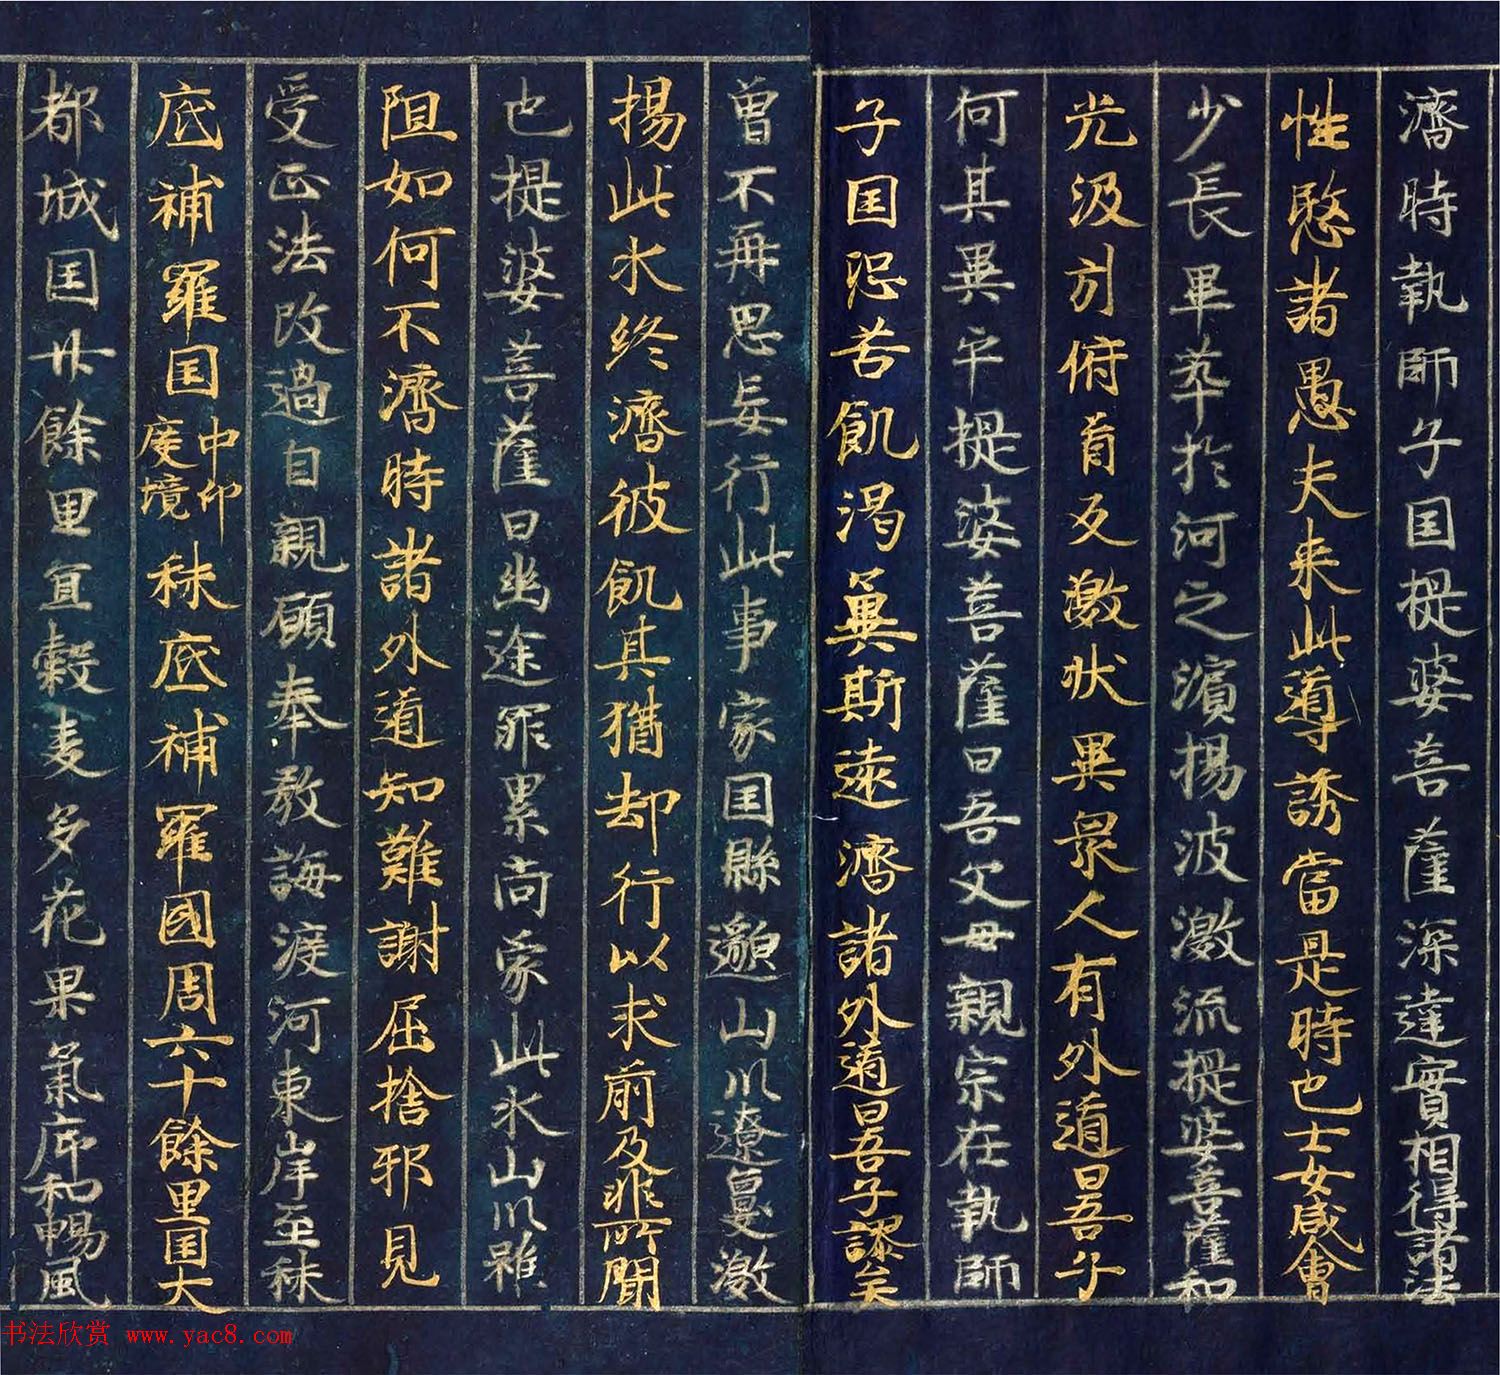 濟時執師子国提婆菩薩深達實相得諸法
性愍諸愚夫来此導誘當是時也士女咸會
少長畢萃於河之濱揚波激流提婆菩薩和
光汲引俯首反激状異衆人有外道曰吾子
何其異乎提婆菩薩曰吾父母親宗在執師
子国恐苦飢渇冀斯遠濟諸外道曰吾子謬矣
曽不再思妄行此事家国緜邈山川遼敻激
揚此水終濟彼飢其猶却行以求前及非所聞
也提婆菩薩曰幽途罪累尚蒙此水山川雖
阻如何不濟時諸外道知難謝屈捨邪見
受正法改過自親願奉教誨渡河東岸至秣
底補羅国中印度境秣底補羅國周六十餘里国大
都城国廿餘里宜穀麦多花果氣序和暢風
书法欣赏 www.yac8.com